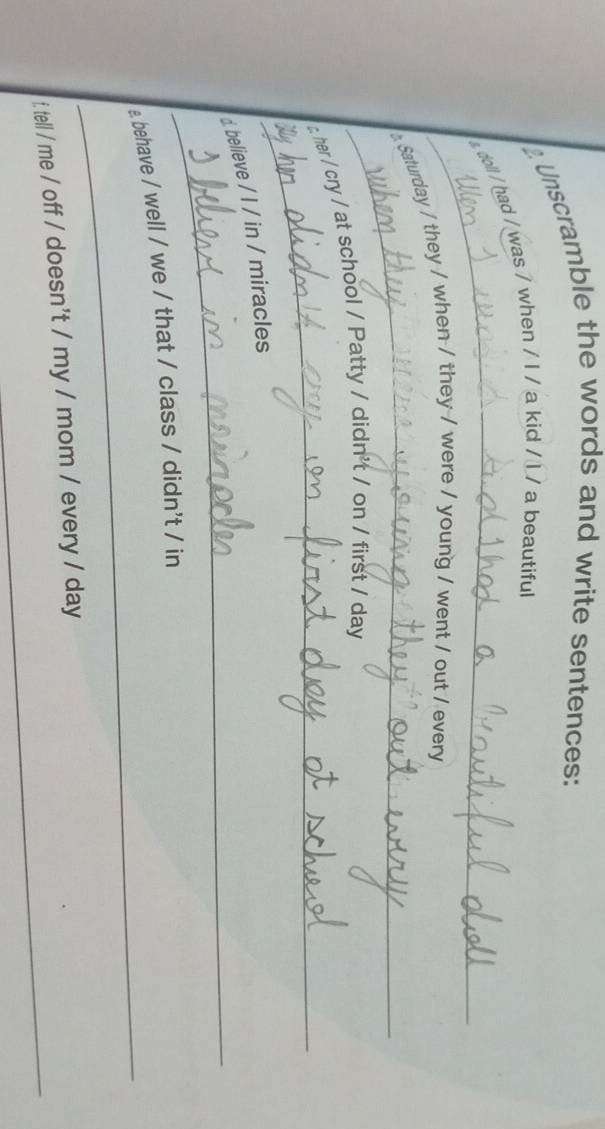 2. Unscramble the words and write sentences:
a. doll / had / was / when / I / a kid / I / a beautiful
I had a beautiful doll
b. Saturday / they / when / they / were / young / went / out / every
when they were young they out every
c. her / cry / at school / Patty / didn't / on / first / day
her didn't cry on first day at school
d. believe / I / in / miracles
I believe in miracles
e. behave / well / we / that / class / didn't / in
f. tell / me / off / doesn't / my / mom / every / day